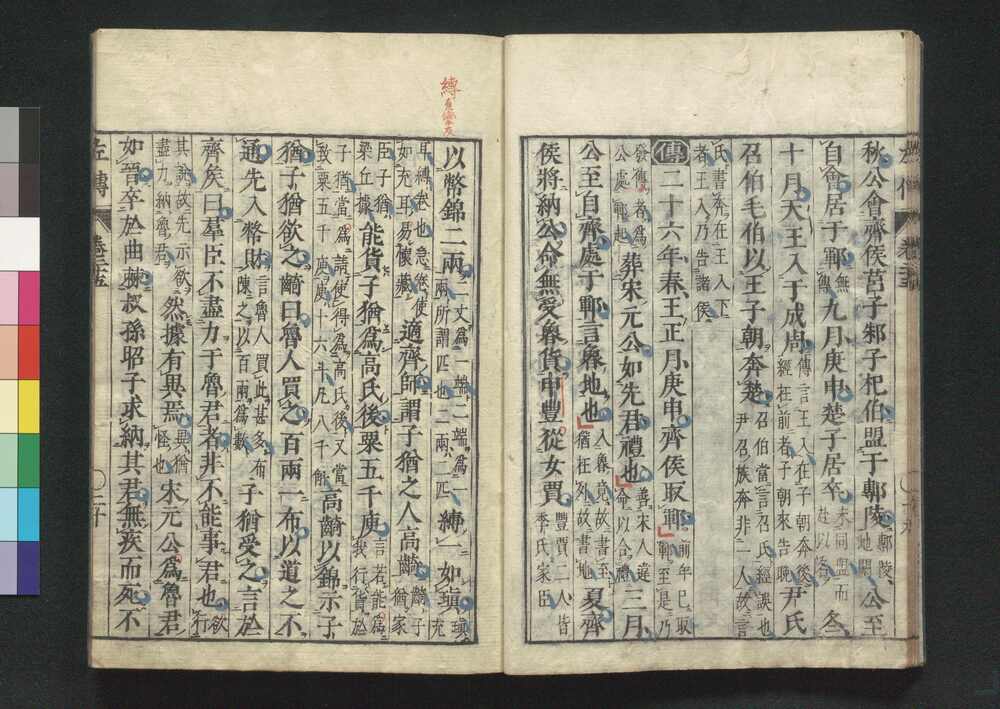 秋公會齊侯莒子邾子杞伯盟于鄟陵鄟陵地闕公至
自會居于鄆無傳九月庚申楚子居卒未同盟而赴以名冬
十月天王入于成周傳言王入在子朝奔後經在前者子朝來告晚尹氏
召伯毛伯以王子朝奔楚召伯當言召氏經誤也尹召族奔非一人故言
氏書奔在王入下者王入乃告諸侯
傳二十六年春王正月庚申齊侯取鄆前年已取鄆至是乃
發傳者為公處鄆起葬宋元公如先君禮也善宋人違命以合禮三月
公至自齊處于鄆言魯地也入魯竟故書至猶在外故書地夏齊
侯將納公命無受魯貨申豐從女賈豐賈二人皆季氏家臣
左傳
以幣錦二兩二丈為一端二端為一兩所謂匹也二兩二匹縛一如瑱瑱充
耳縛卷也急卷使如充耳易懷藏適齊師謂子猶之人高齮齮子猶家
臣子猶梁丘據能貨子猶為高氏後粟五千庾言若能為我行貨於
子猶當為請使得為高氏後又當致粟五千庾庾十六斗凡八千斛高齮以錦示子
猶子猶欲之齮曰魯人買之百兩一布以道之不
通先入幣財言魯人買此甚多布陳之以百兩為數子猶受之言於
齊侯曰羣臣不盡力于魯君者非不能事君也欲行
其說故先示欲盡力納魯君然據有異焉異猶怪也宋元公為魯君
如晉卒於曲棘叔孫昭子求納其君無疾而死不
左傳
二十
縛